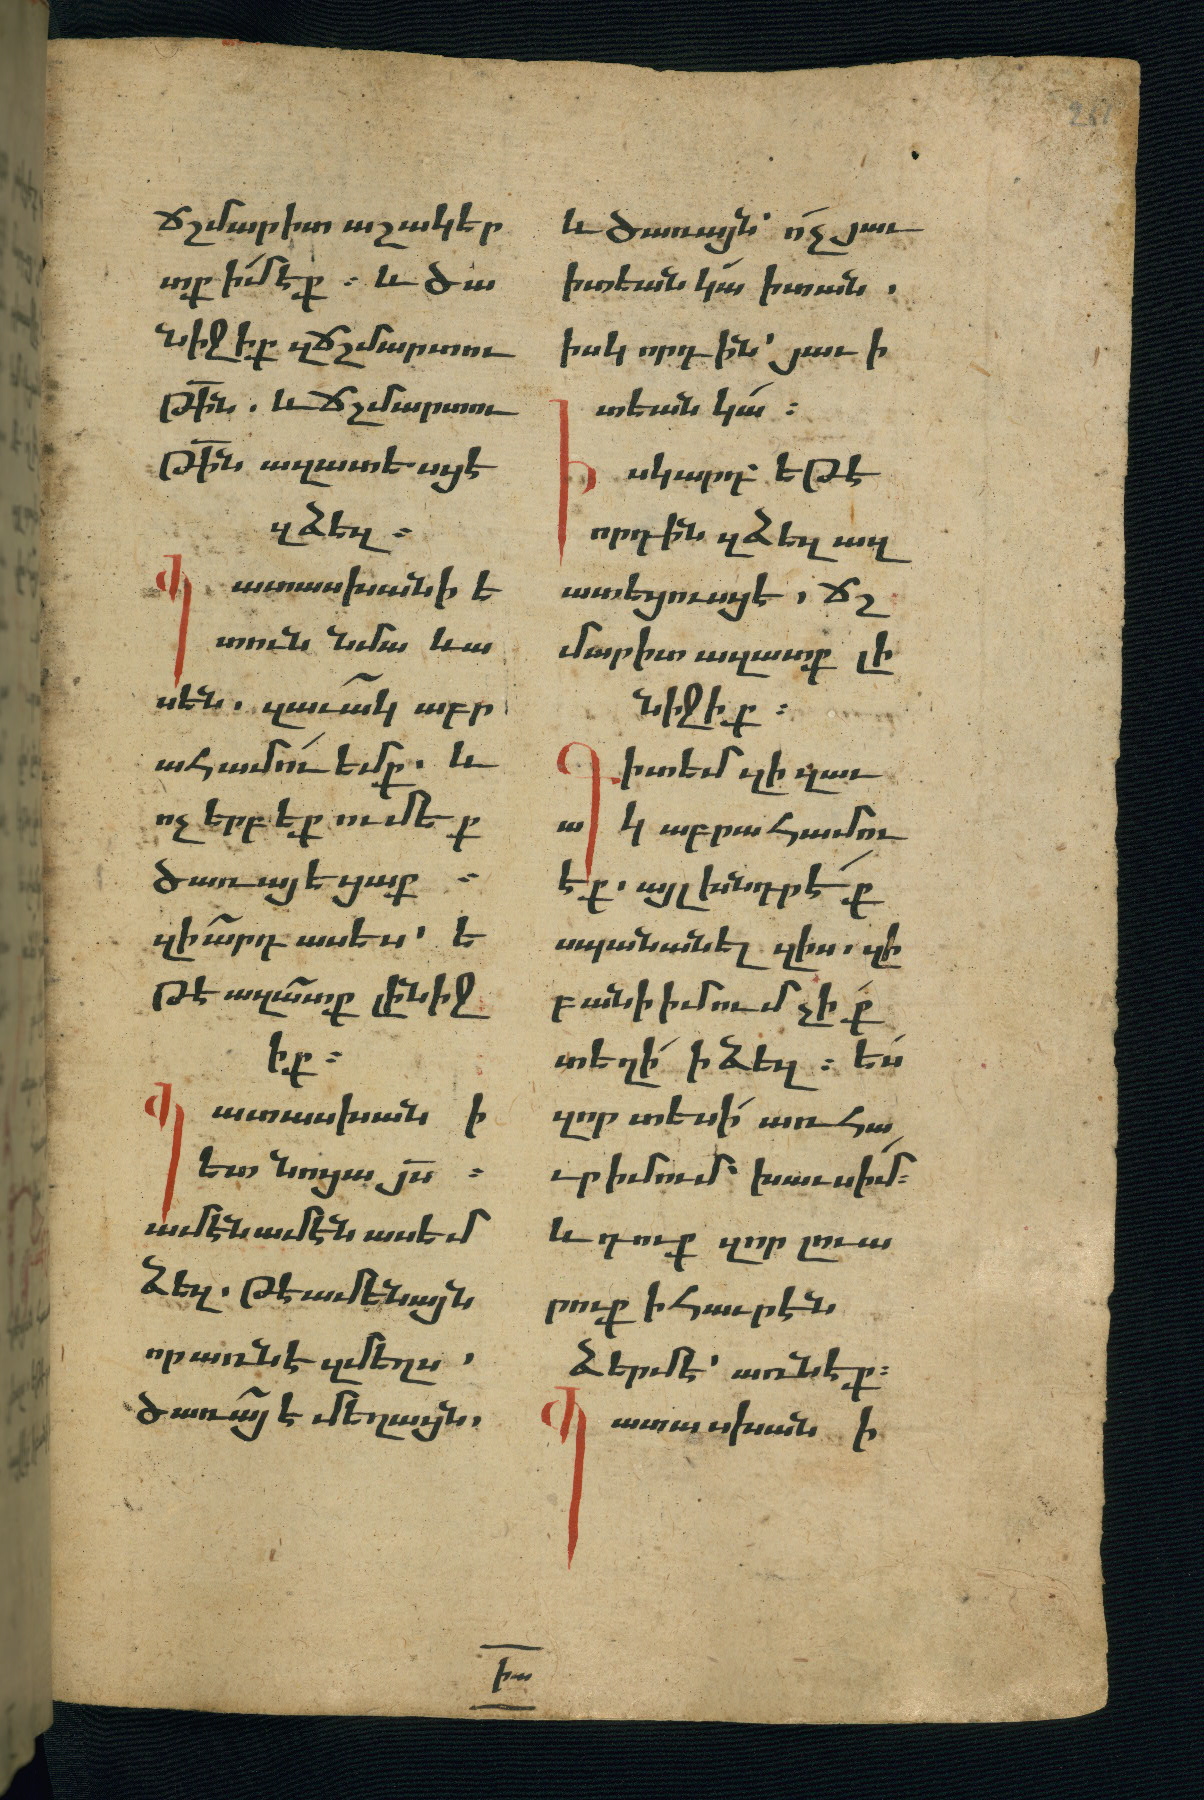 ճշմարիտ աշակեր
տք իմ էք ։ և ծա
նիջիք զճշմարտու
թի̅ն . և ճշմարտու
թի̅ն ազատեսցէ
զձեզ ։
Պատասխանի ե
տուն նմա և ա
սեն . զաւակ աբր
ահամու եմք . և
ոչ երբեք ումեք
ծառայեցաք ։
զի՞արդ ասես՝ ե
թէ ազատք լինիջ
իք ։
Պատասխան ի
ետ նոցա յս̅ ։
ամէն ամէն ասեմ
ձեզ . թէ ամենայն
որ առնէ զմեղս ,
ծառայ է մեղացն ,
և ծառայն՝ ո՛չ յաւ
իտեան կա՛ ի տան .
իսկ որդին՝ յաւ ի
տեան կա՛ ։
Իսկ արդ՝ եթէ
որդին զձեզ ազ
ատեցուսցէ , ճշ
մարիտ ազատք լի
նիջիք ։
Գիտեմ զի զաւ
ակ աբրահամու
էք . այլ խնդրէ՛ք
սպանանել զիս , զի
բանի իմում չի՛ք
տեղի՛ ի ձեզ ։ ես՛
զոր տեսի՛ առ հա
ւր իմում՝ խաւսիմ՛ ։
և դուք զոր լուա
րուք ի հաւրէն
ձերմէ՝ առնէք ։
Պատասխան ի
իա
217